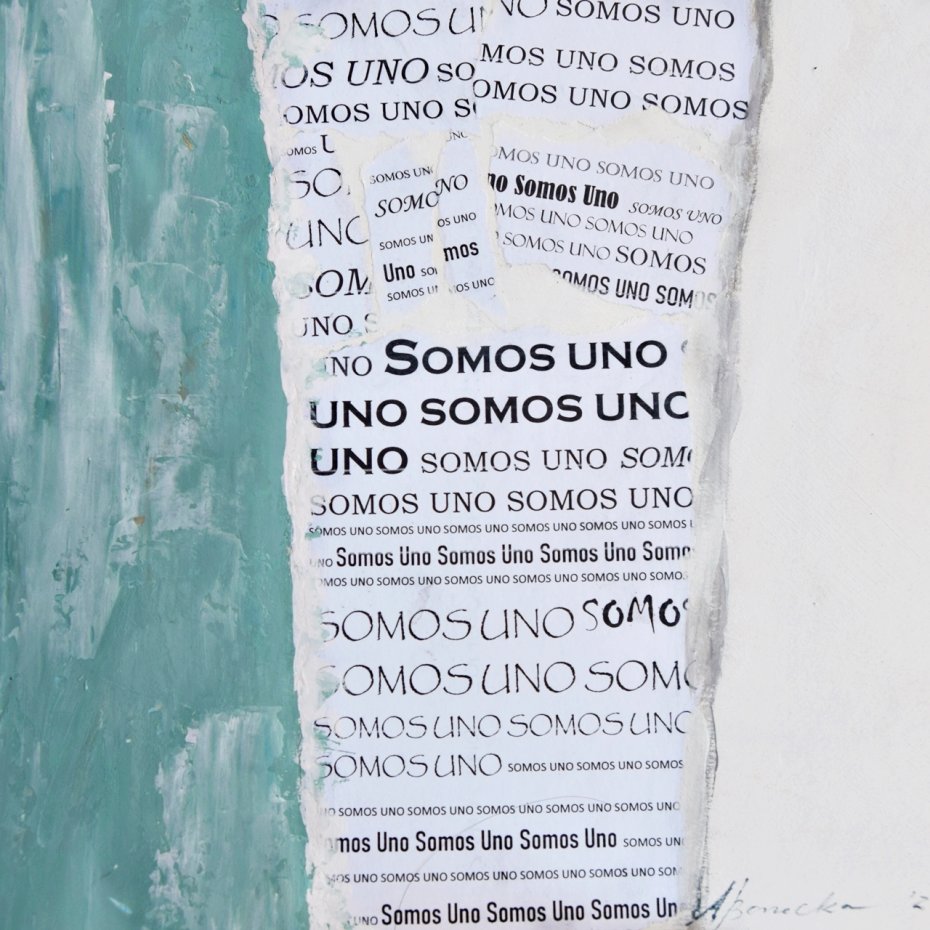 SOMOS
NO SOMOS UNO
OS UNO SO
MOS UNO SOMOS
OMOS UNO S
OMOS UNO SOMOS
OMOS U
SO
UNO
SOM
UNO S
SOMOS UN
SOMO
SOMOS UN
Uno so
SOMOS U
UNO
NO
OS UNO
mos
MOS UNO
OMOS UNO SOMOS UNO
no Somos Uno SOMOS UNO
MOS UNO SOMOS UNO
SOMOS UNO SOMOS
OMOS UNO SOMOS
UNO SOMOS UNO
UNO SOMOS UNO
UNO SOMOS UNO SOM
SOMOS UNO SOMOS UNO
SOMOS UNO SOMOS UNO SOMOS UNO SOMOS UNO SOMOS UNO SOMOS U
UNO Somos Uno Somos Uno Somos Uno Somo
OMOS UNO SOMOS UNO SOMOS UNO SOMOS UNO SOMOS UNO SOMO
SOMOS UNO SOMOS
SOMOS UNO SOMO
SOMOS UNO SOMOS UNO
SOMOS UNO SOMOS UNO SOMOS UNO SOMOS
NO SOMOS UNO SOMOS UNO SOMOS UNO SOMOS UNO SOMOS UNO
mos Uno Somos Uno Somos Uno SOMOS UN
MOS UNO SOMOS UNO SOMOS UNO SOMOS UNO SOMOS UNO SOM
UNO Somos Uno Somos Uno Somos Un